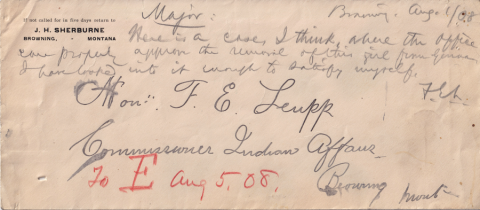 If not called for in five days return to
J. H. SHERBURNE
BROWNING, - MONTANA
Major:
Browning, Aug. 1/08
Here is a case, I think, where the office
can properly approve the removal of this girl from
I have looked into it enough to satisfy myself.
Hon. F. E. Leupp
Commissioner Indian Affairs
Browning Mont
To E Aug 5, 08.